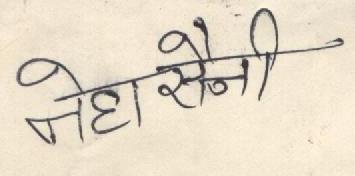 नेहा सैनी